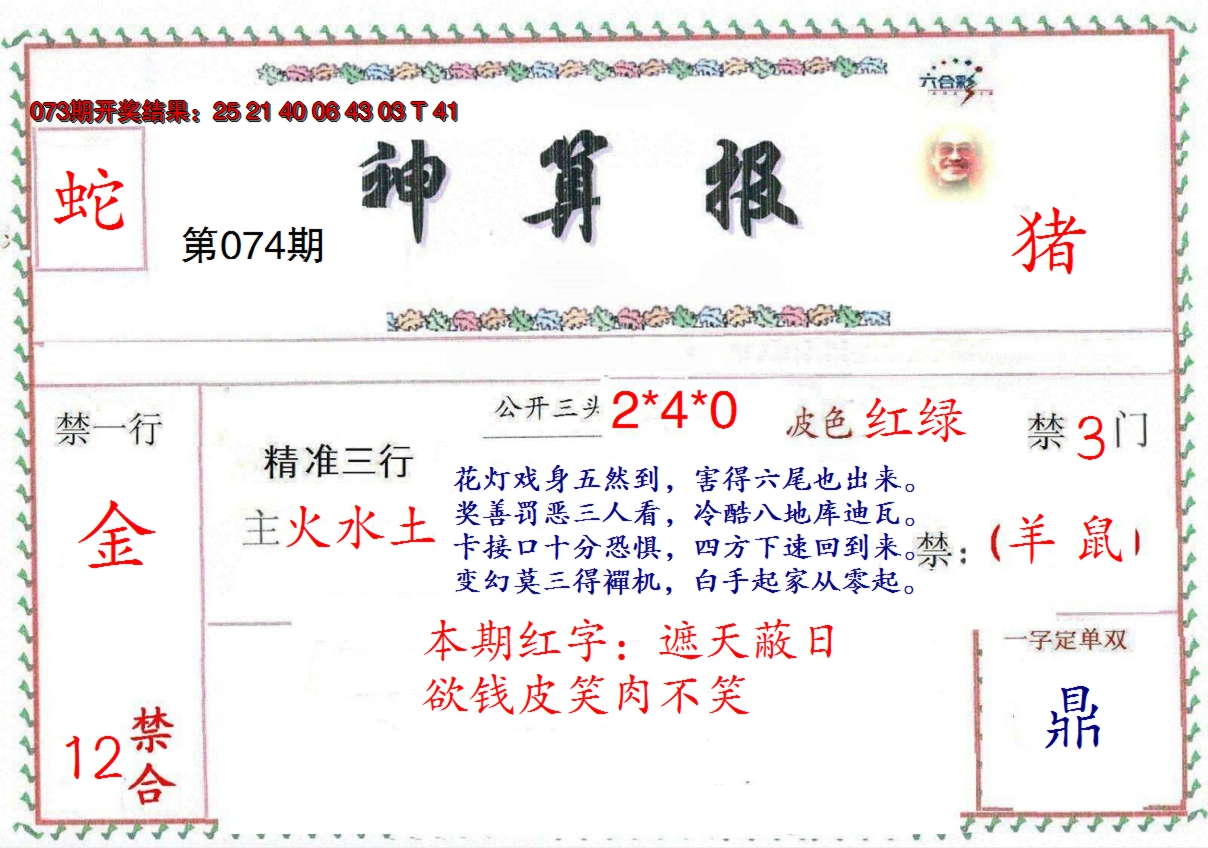 六合彩
073期开奖结果：25 21 40 06 43 03 T 41
神算报
蛇
第074期
猪
禁一行
金
12禁合
精准三行
主火水土
公开三头 2*4*0
波色 红绿
禁3门
花灯戏身五然到，害得六尾也出来。
奖善罚恶三人看，冷酷八地库迪瓦。
卡接口十分恐惧，四方下速回到来。
变幻莫三得襌机，白手起家从零起。
禁：（羊 鼠）
本期红字：遮天蔽日
欲钱皮笑肉不笑
一字定单双
鼎